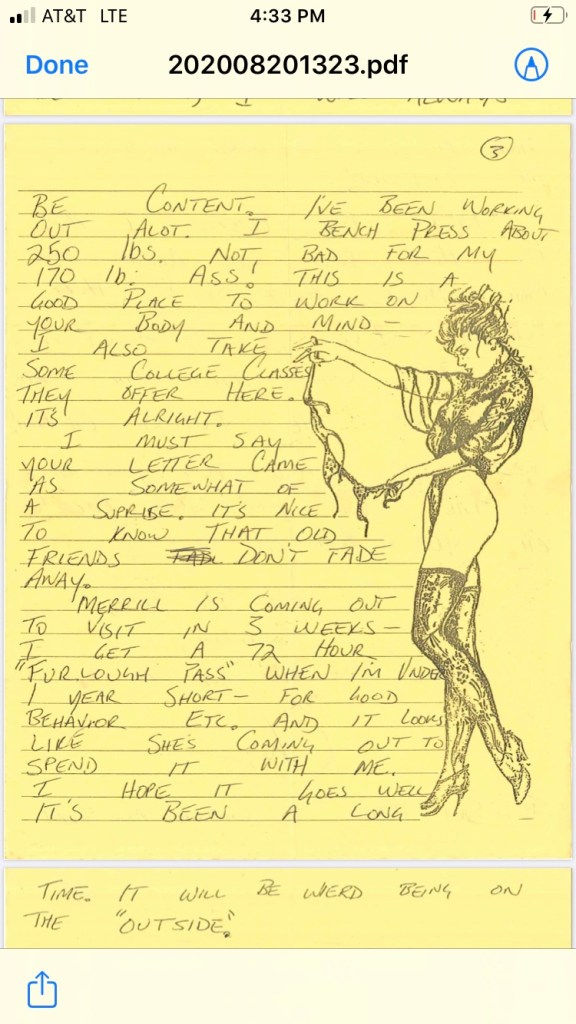 AT&T LTE 4:33 PM
Done 202008201323.pdf
3
BE CONTENT. I'VE BEEN WORKING
OUT ALOT. I BENCH PRESS ABOUT
250 lbs. NOT BAD FOR MY
170 lb. ASS! THIS IS A
GOOD PLACE TO WORK ON
YOUR BODY AND MIND —
I ALSO TAKE
SOME COLLEGE CLASSES
THEY OFFER HERE.
IT'S ALRIGHT.
I MUST SAY
YOUR LETTER CAME
AS SOMEWHAT OF
A SUPRISE. IT'S NICE
TO KNOW THAT OLD
FRIENDS DON'T FADE
AWAY.
MERRILL IS COMING OUT
TO VISIT IN 3 WEEKS —
I GET A 72 HOUR
"FURLOUGH PASS" WHEN I'M UNDER
1 YEAR SHORT — FOR GOOD
BEHAVIOR ETC. AND IT LOOKS
LIKE SHE'S COMING OUT TO
SPEND IT WITH ME.
I HOPE IT GOES WELL
IT'S BEEN A LONG
TIME. IT WILL BE WIERD BEING ON
THE "OUTSIDE".